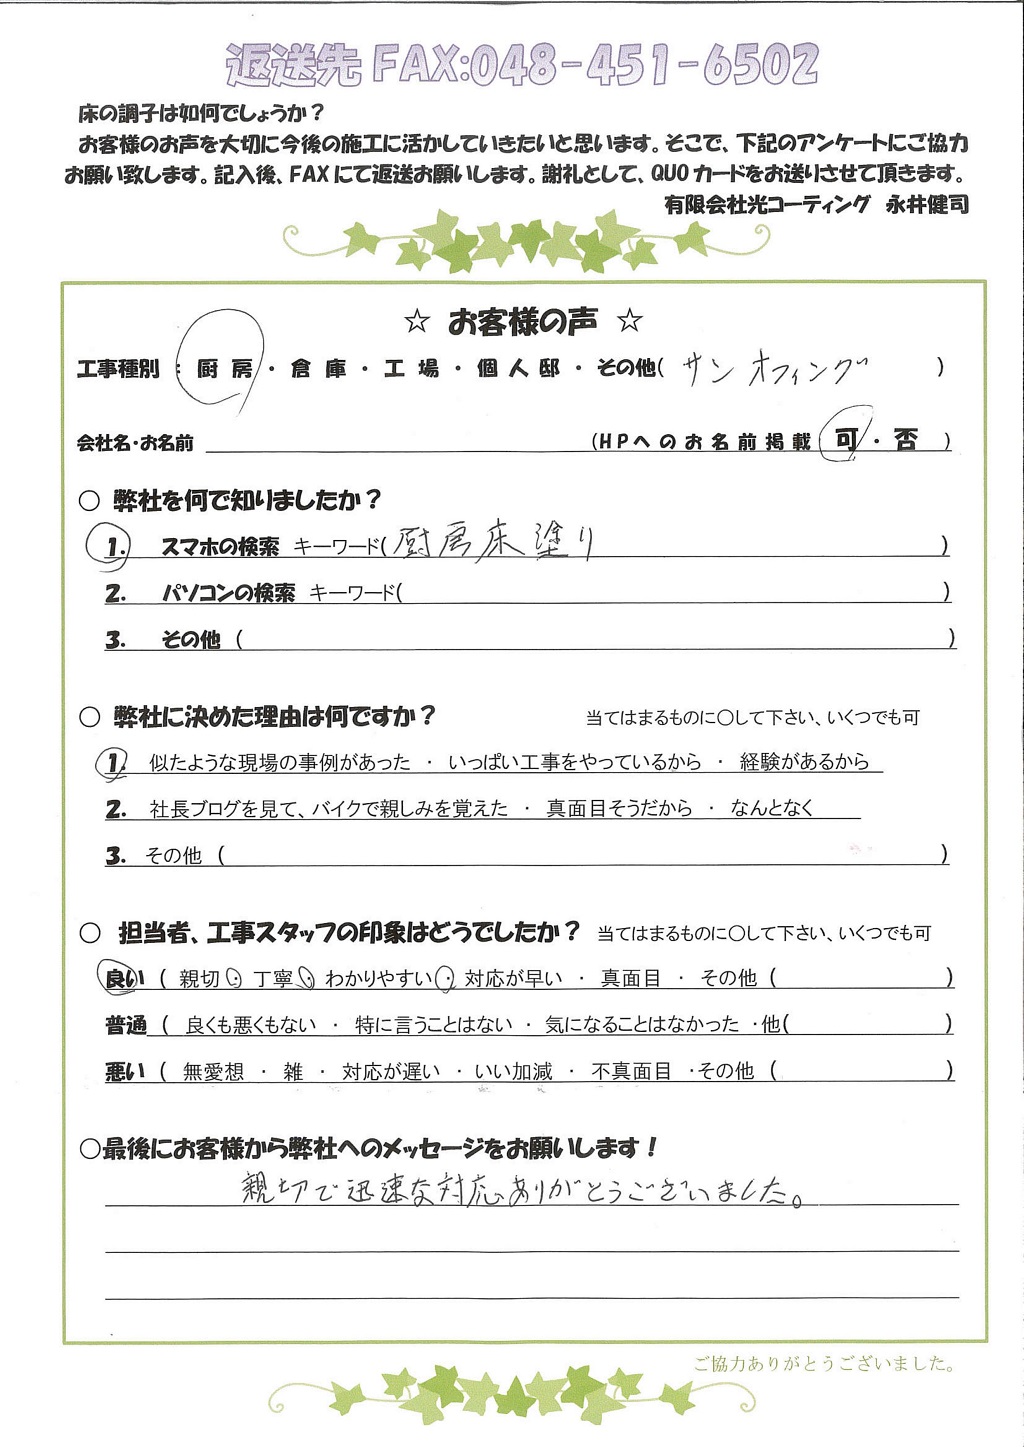 返送先 FAX:048-451-6502
床の調子は如何でしょうか？
お客様のお声を大切に今後の施工に活かしていきたいと思います。そこで、下記のアンケートにご協力
お願い致します。記入後、FAXにて返送お願いします。謝礼として、QUOカードをお送りさせて頂きます。
有限会社光コーティング　永井健司
☆ お客様の声 ☆
工事種別 : 厨房・倉庫・工場・個人邸・その他( サンオフィング )
会社名・お名前 (HPへのお名前掲載 可・否 )
○ 弊社を何で知りましたか？
1. スマホの検索 キーワード( 厨房床塗り )
2. パソコンの検索 キーワード( )
3. その他 ( )
○ 弊社に決めた理由は何ですか？ 当てはまるものに○して下さい、いくつでも可
1. 似たような現場の事例があった ・ いっぱい工事をやっているから ・ 経験があるから
2. 社長ブログを見て、バイクで親しみを覚えた ・ 真面目そうだから ・ なんとなく
3. その他 ( )
○ 担当者、工事スタッフの印象はどうでしたか？ 当てはまるものに○して下さい、いくつでも可
良い ( 親切 ・ 丁寧 ・ わかりやすい ・ 対応が早い ・ 真面目 ・ その他 ( )
普通 ( 良くも悪くもない ・ 特に言うことはない ・ 気になることはなかった ・他( )
悪い ( 無愛想 ・ 雑 ・ 対応が遅い ・ いい加減 ・ 不真面目 ・その他 ( )
○最後にお客様から弊社へのメッセージをお願いします！
親切で迅速な対応ありがとうございました。
ご協力ありがとうございました。